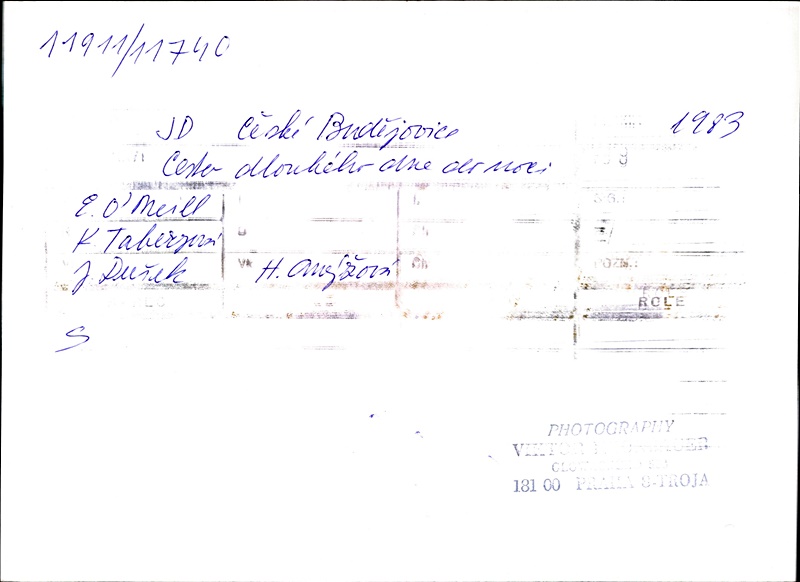 11911/11740
JD České Budějovice 1983
Cesta dlouhého dne do noci
E. O'Neill
K Taberyová
J. Dušek H. Anýžová
POZN.:
ROLE
S
PHOTOGRAPHY
VIKTOR
181 00 PRAHA 8-TROJA